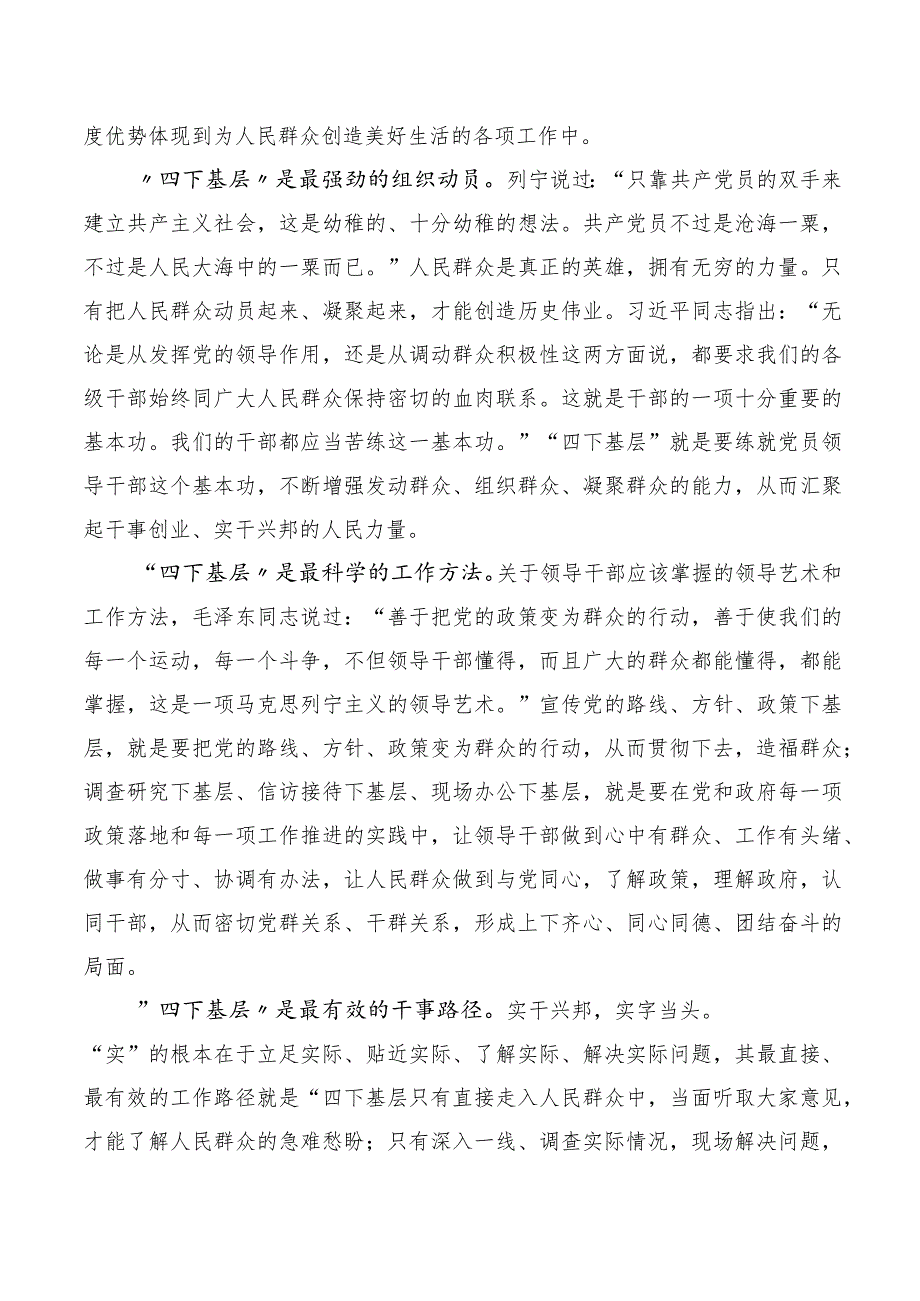 度优势体现到为人民群众创造美好生活的各项工作中。
〃四下基层〃是最强劲的组织动员。列宁说过：“只靠共产党员的双手来
建立共产主义社会，这是幼稚的、十分幼稚的想法。共产党员不过是沧海一粟，
不过是人民大海中的一粟而已。”人民群众是真正的英雄，拥有无穷的力量。只
有把人民群众动员起来、凝聚起来，才能创造历史伟业。习近平同志指出：“无
论是从发挥党的领导作用，还是从调动群众积极性这两方面说，都要求我们的各
级干部始终同广大人民群众保持密切的血肉联系。这就是干部的一项十分重要的
基本功。我们的干部都应当苦练这一基本功。”“四下基层”就是要练就党员领
导干部这个基本功，不断增强发动群众、组织群众、凝聚群众的能力，从而汇聚
起干事创业、实干兴邦的人民力量。
“四下基层〃是最科学的工作方法。关于领导干部应该掌握的领导艺术和
工作方法，毛泽东同志说过：“善于把党的政策变为群众的行动，善于使我们的
每一个运动，每一个斗争，不但领导干部懂得，而且广大的群众都能懂得，都能
掌握，这是一项马克思列宁主义的领导艺术。”宣传党的路线、方针、政策下基
层，就是要把党的路线、方针、政策变为群众的行动，从而贯彻下去，造福群众；
调查研究下基层、信访接待下基层、现场办公下基层，就是要在党和政府每一项
政策落地和每一项工作推进的实践中，让领导干部做到心中有群众、工作有头绪、
做事有分寸、协调有办法，让人民群众做到与党同心，了解政策，理解政府，认
同干部，从而密切党群关系、干群关系，形成上下齐心、同心同德、团结奋斗的
局面。
”四下基层〃是最有效的干事路径。实干兴邦，实字当头。
“实”的根本在于立足实际、贴近实际、了解实际、解决实际问题，其最直接、
最有效的工作路径就是“四下基层只有直接走入人民群众中，当面听取大家意见，
才能了解人民群众的急难愁盼；只有深入一线、调查实际情况，现场解决问题，